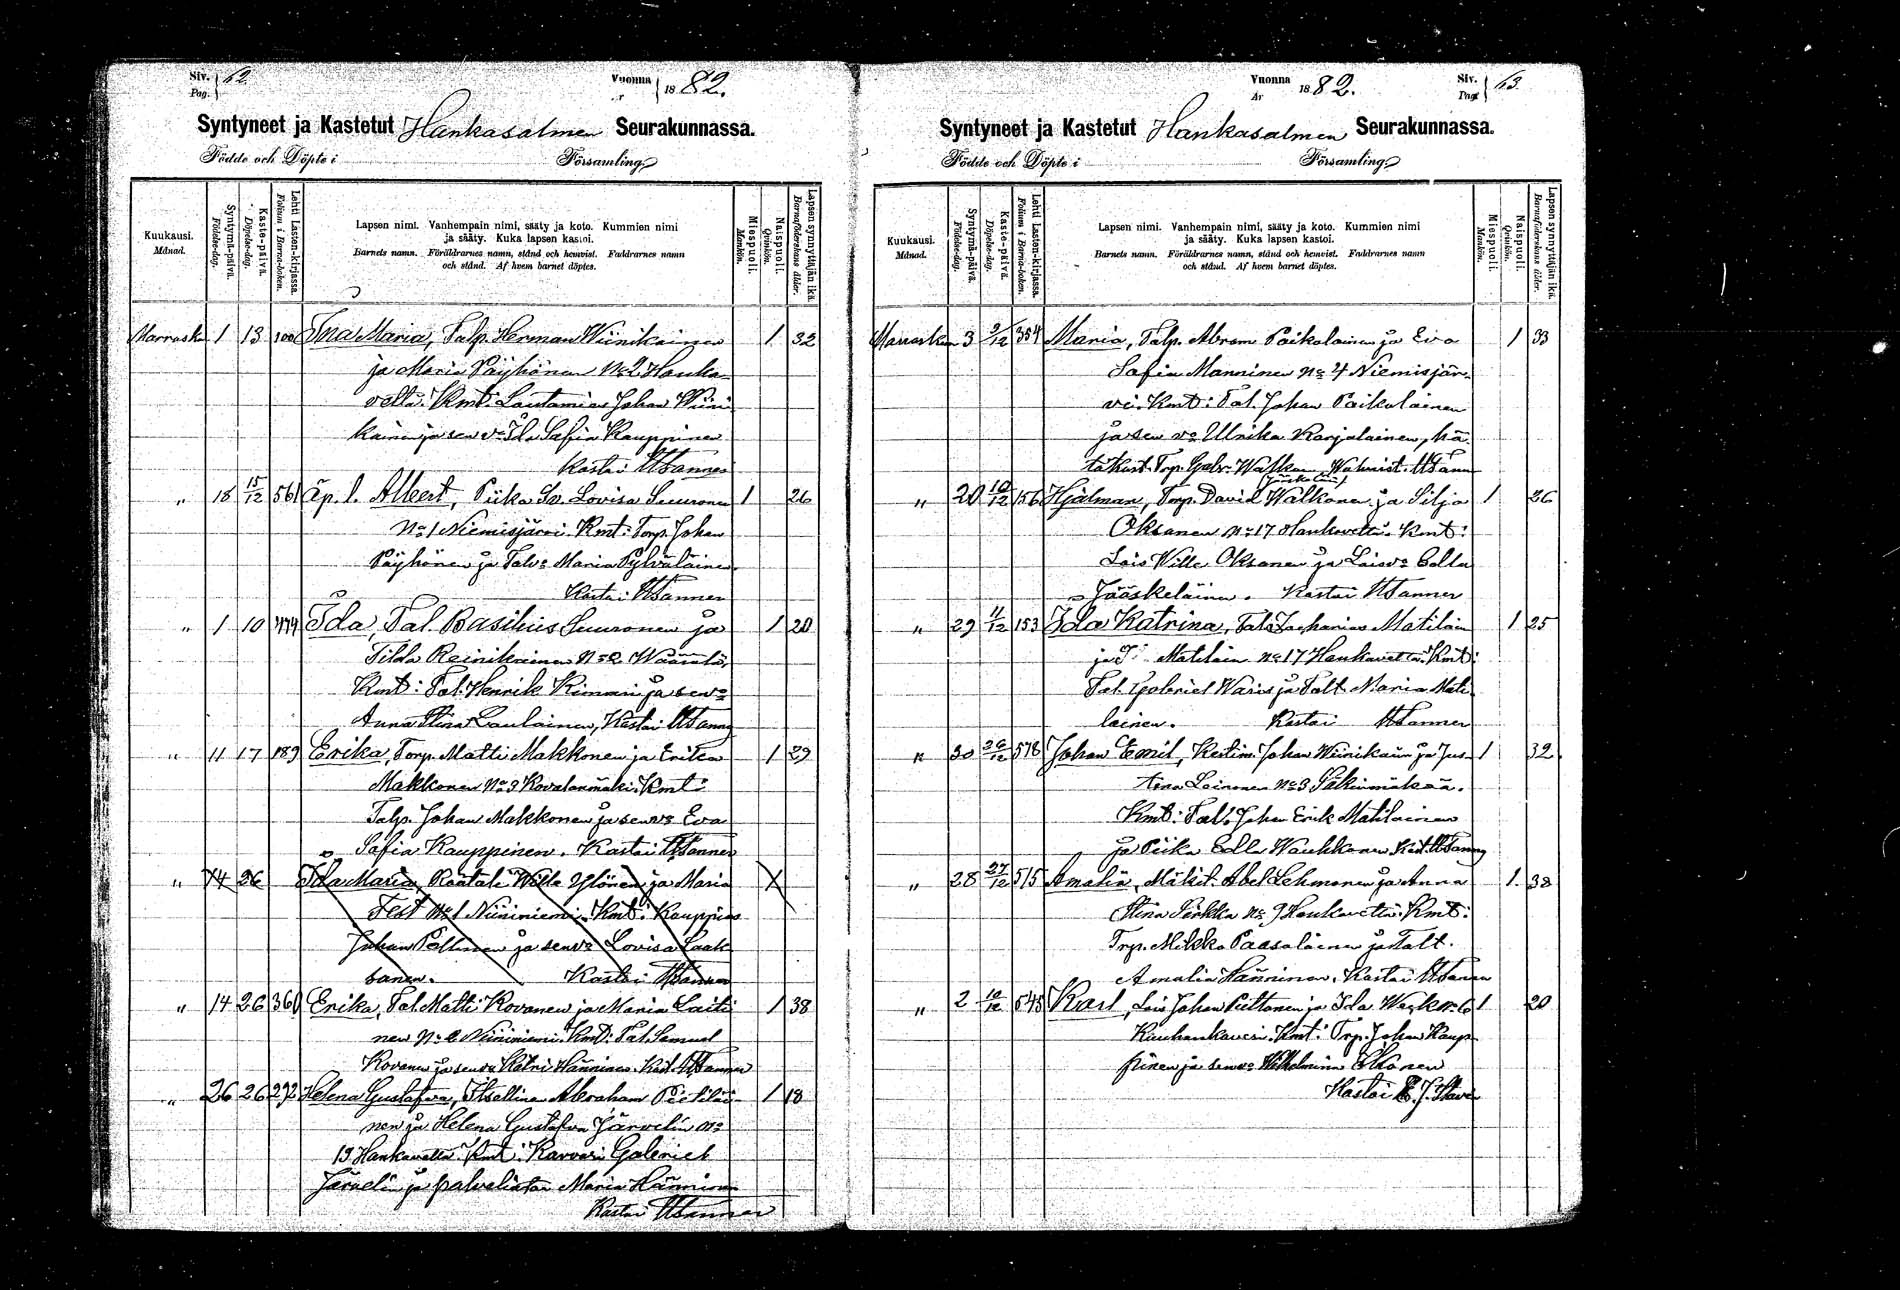 Siv. 62.
Pag.
Vuonna 1882.
Syntyneet ja Kastetut Hankasalmen Seurakunnassa.
Födde och Döpte i Församling.
Kuukausi.
Månad.
Syntymä-päivä.
Födelse-dag.
Kaste-päivä.
Döpelse-dag.
Lehti Lasten-kirjassa.
Folium i Barna-boken.
Lapsen nimi. Vanhempain nimi, sääty ja koto. Kummien nimi
ja sääty. Kuka lapsen kastoi.
Barnets namn. Föräldrarnes namn, stånd och hemvist. Faddrarnes namn
och stånd. Af hvem barnet döptes.
Miespuoli.
Mankön.
Naispuoli.
Qvinkön.
Lapsen synnyttäjän ikä.
Barnaföderskans ålder.
Marrask. 1 13 100 Ina Maria, Talp. Herman Wiinikainen 1 32
ja Maria Päyhönen No 2 Hanka-
vettä. Kmt: Lautamies Johan Wiini-
kainen ja sen vo Ida Safia Kauppinen
Kastoi
" 18 15/12 561 Äp. l. Albert, Piika Lovisa Suuronen 1 26
No 1 Niemisjärvi. Kmt: Torp. Johan
Päyhönen ja Talvo Maria Pylväläinen.
Kastoi
" 1 10 474 Ida, Tal. Basilius Suuronen ja 1 20
Tilda Reinikainen No 2
Kmt: Tal. Henrik Kinnari ja senvo
Anna Stina Laulainen, Kastoi
" 11 17 189 Erika, Torp. Matti Makkonen ja Erika 1 29
Makkonen No 3 Kovalanmäki. Kmt:
Talp. Johan Makkonen ja senvo Eva
Safia Kauppinen. Kastoi
" 14 26 Ida Maria, Räätäli Wille Ylönen ja Maria
Fest No 1 Niininiemi. Kmt: Kauppias
Johan Pellinen ja senvo Lovisa Laak-
sanen. Kastoi
" 14 26 360 Erika, Tal. Matti Kovanen ja Maria Laiti- 1 38
nen No 2 Niininiemi. Kmt: Tal. Samuel
Kovanen ja senvo Katri Hänninen. Kast.
" 26 26 272 Helena Gustafva, Itsellinen Abraham Pietiläi- 1 18
nen ja Helena Gustafva Järvelin No
19 Hankavettä. Kmt: Karvari Gabriel
Järvelin ja palveliatar Maria Hänninen
Kastoi
Siv. 63.
Pag.
Vuonna 1882.
År
Syntyneet ja Kastetut Hankasalmen Seurakunnassa.
Födde och Döpte i Församling.
Kuukausi.
Månad.
Syntymä-päivä.
Födelse-dag.
Kaste-päivä.
Döpelse-dag.
Lehti Lasten-kirjassa.
Folium i Barna-boken.
Lapsen nimi. Vanhempain nimi, sääty ja koto. Kummien nimi
ja sääty. Kuka lapsen kastoi.
Barnets namn. Föräldrarnes namn, stånd och hemvist. Faddrarnes namn
och stånd. Af hvem barnet döptes.
Miespuoli.
Mankön.
Naispuoli.
Qvinkön.
Lapsen synnyttäjän ikä.
Barnaföderskans ålder.
Marraskuu 3 9/12 354 Maria, Talp. Abram Paikolainen ja Eva 1 33
Safia Manninen No 4 Niemisjär-
vi. Kmt: Tal. Johan Paikolainen
ja sen vo Ulrika Karjalainen, hä-
täkast.
" 20 10/12 156 Hjalmar, Torp. David Walkonen ja Silja 1 26
Oksanen No 17 Hankavettä. Kmt:
Lois Wille Oksanen ja Loisvo Edla
Jääskeläinen. Kastoi
" 29 11/12 153 Ida Katrina, Tal. Zacharias Matilain 1 25
ja Matilain No 17 Hankavettä. Kmt:
Tal. Gabriel Waris ja Talt. Maria Mati-
lainen. Kastoi
" 30 26/12 578 Johan Emil, Kestim. Johan Wiinikain ja Jus- 1 32
tina Leinonen No 3
Kmt: Tal. Johan Erik Matilainen
ja Piika Edla Kast.
" 28 27/12 515 Amalia, Mäkit. Abel Lehmonen ja Anna 1 38
Stina Pirkka No 9 Hankavettä. Kmt:
Trp. Mikko Paasolainen ja Talt.
Amalia Hänninen. Kastoi
" 2 10/12 545 Karl, Lois Johan Piittonen ja Ida 1 20
Kmt: Trp. Johan Kaup-
pinen ja senvo Wilhelmiina Ikonen
Kastoi